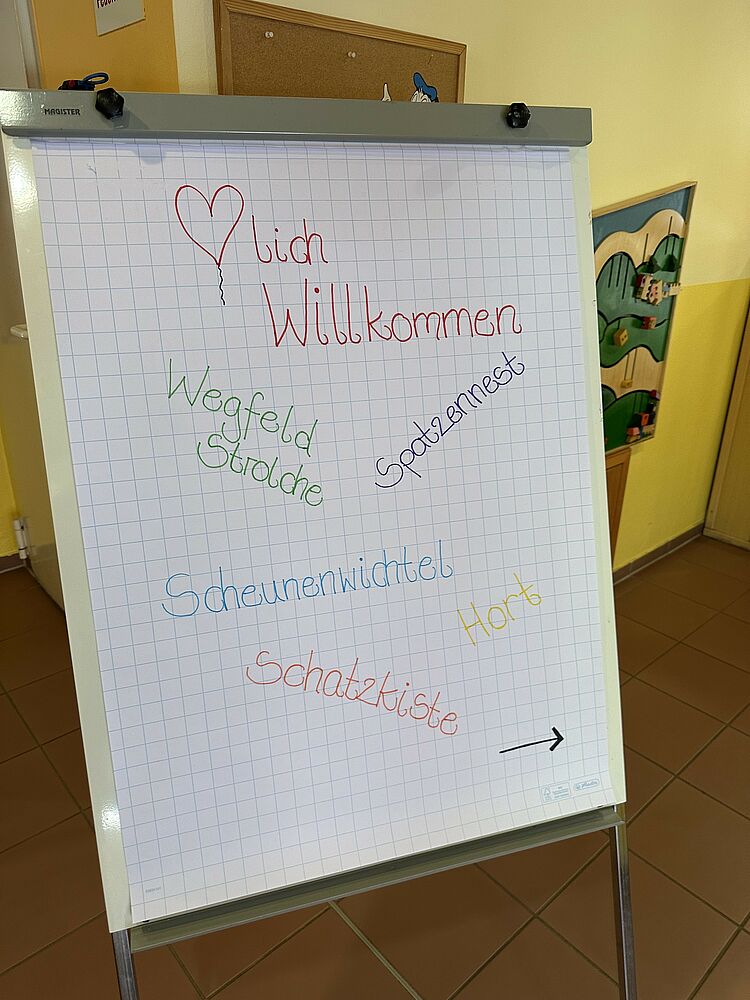 MAGISTER
lich
Willkommen
Wegfeld
Strolche
Spatzennest
Scheunenwichtel
Hort
Schatzkiste